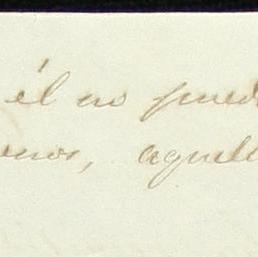 él no pued
enos, aquell